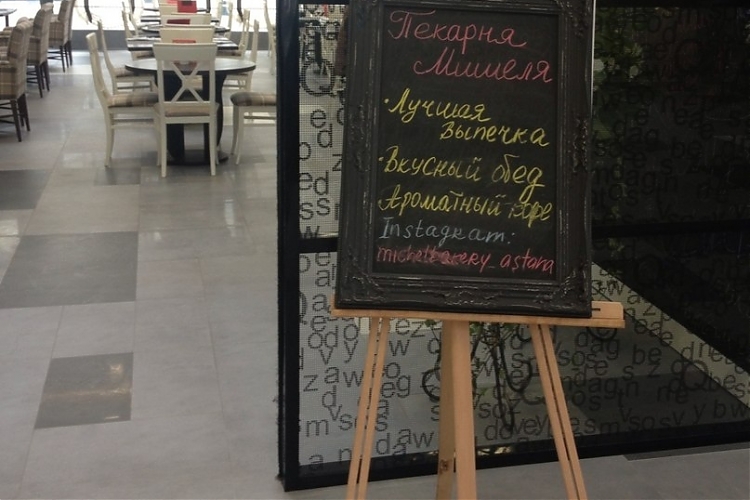 Пекарня
Мишеля
·Лучшая
Выпечка
·Вкусный обед
Ароматный кофе
Instagram:
astana